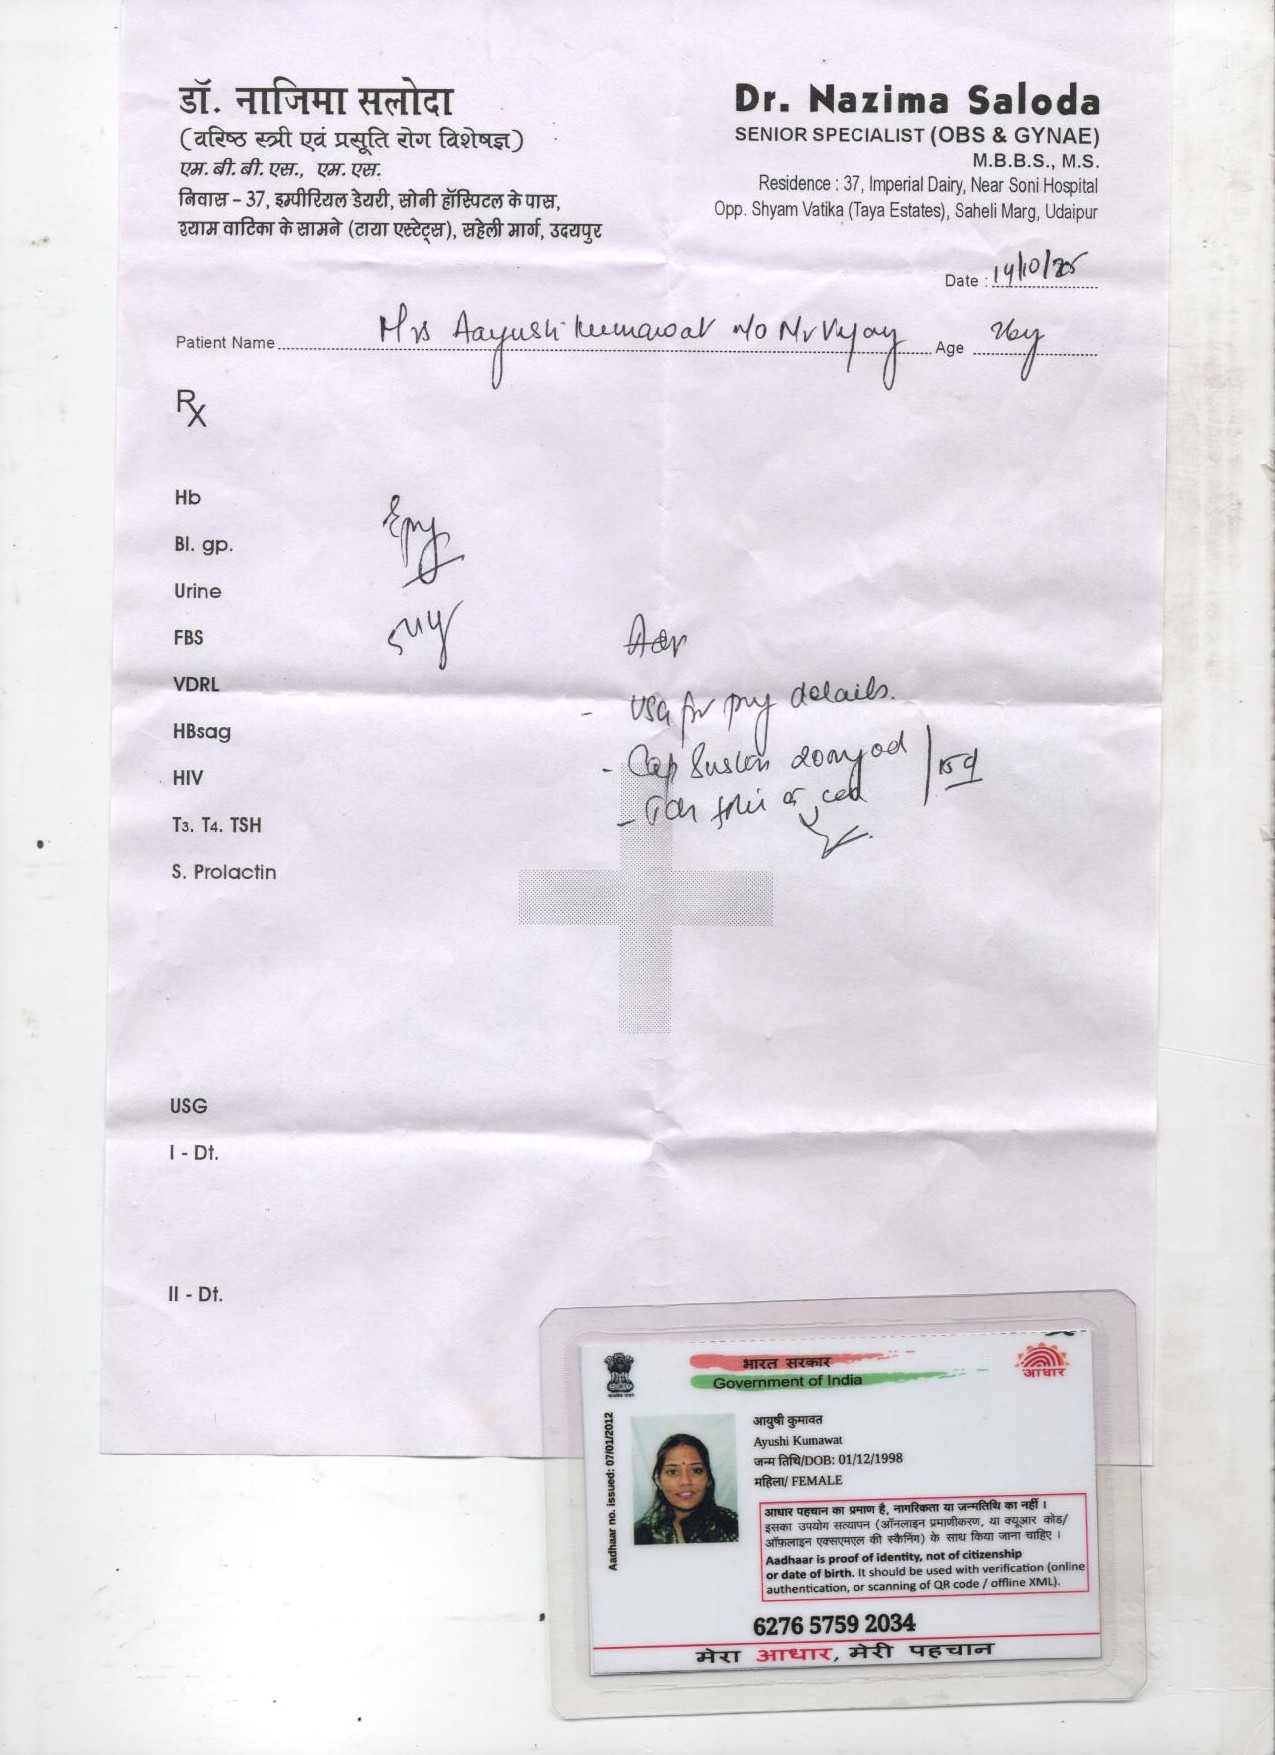 डॉ. नाजिमा सलोदा
(वरिष्ठ स्त्री एवं प्रसूति रोग विशेषज्ञ)
एम.बी.बी.एस., एम.एस.
निवास - 37, इम्पीरियल डेयरी, सोनी हॉस्पिटल के पास,
श्याम वाटिका के सामने (टाया एस्टेट्स), सहेली मार्ग, उदयपुर
Dr. Nazima Saloda
SENIOR SPECIALIST (OBS & GYNAE)
M.B.B.S., M.S.
Residence : 37, Imperial Dairy, Near Soni Hospital
Opp. Shyam Vatika (Taya Estates), Saheli Marg, Udaipur
Date : 14/10/25
Patient Name Mrs Aayushi Kumawat w/o Mr Vijay Age 26y
Rx
Hb
Bl. gp.
Urine
FBS
Adv
VDRL
- USG for preg details.
HBsag
- Cap Susten 200mg od
HIV
T3. T4. TSH
S. Prolactin
USG
I - Dt.
II - Dt.
भारत सरकार
Government of India
आधार
Aadhaar no. issued: 07/01/2012
आयुषी कुमावत
Ayushi Kumawat
जन्म तिथि/DOB: 01/12/1998
महिला/ FEMALE
आधार पहचान का प्रमाण है, नागरिकता या जन्मतिथि का नहीं ।
इसका उपयोग सत्यापन (ऑनलाइन प्रमाणीकरण, या क्यूआर कोड/
ऑफ़लाइन एक्सएमएल की स्कैनिंग) के साथ किया जाना चाहिए ।
Aadhaar is proof of identity, not of citizenship
or date of birth. It should be used with verification (online
authentication, or scanning of QR code / offline XML).
6276 5759 2034
मेरा आधार, मेरी पहचान